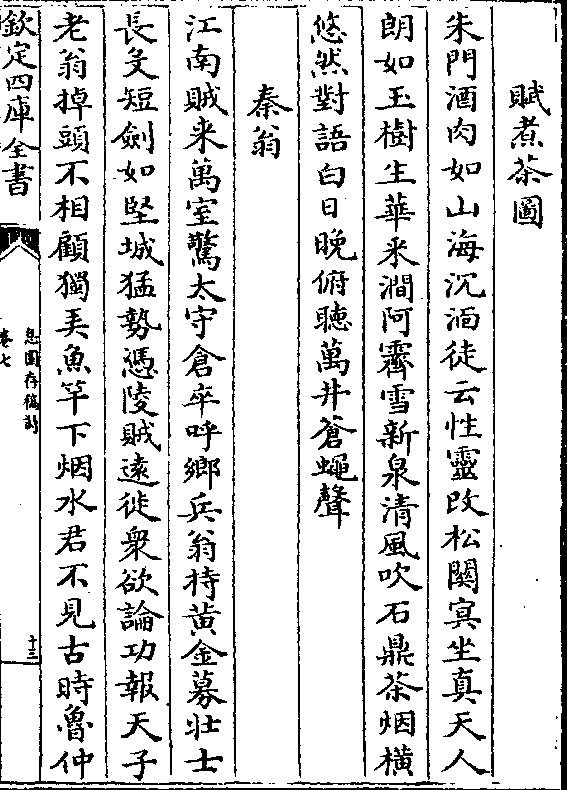 賦煮茶圖
朱門酒肉如山海沉湎徒云性靈改松關㝠坐真天人
朗如玉樹生華彩澗阿霽雪新泉清風吹石鼎茶烟橫
悠然對語白日晚俯聽萬井蒼蠅聲
秦翁
江南賊来萬室驚太守倉卒呼鄉兵翁持黄金募壯士
長矛短劍如堅城猛勢憑陵賊遠徙衆欲論功報天子
老翁掉頭不相顧獨弄魚竿下烟水君不見古時魯仲
欽定四庫全書
卷七
十三